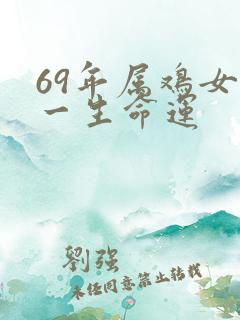 69年属鸡女
一生命运
劉強
未经同意禁止转载